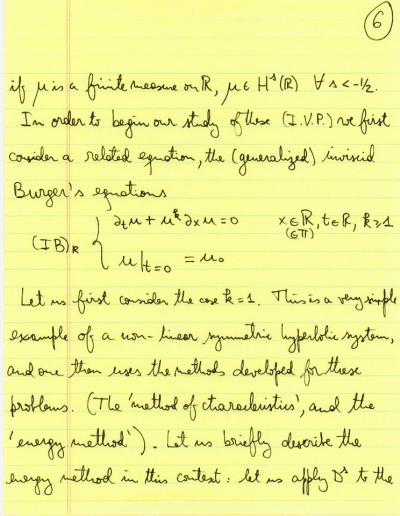 6
if μ is a finite measure on ℝ, μ ∈ H^s(ℝ) ∀ s < -1/2.
In order to begin our study of these (I.V.P.) we first
consider a related equation, the (generalized) inviscid
Burger's equations
(IB)_k { ∂_t u + u^k ∂_x u = 0    x ∈ ℝ, t ∈ ℝ, k ≥ 1
(∈ 𝕋)
u|_{t=0} = u_0
Let us first consider the case k=1. This is a very simple
example of a non-linear symmetric hyperbolic system,
and one then uses the methods developed for these
problems. (The 'method of characteristics', and the
'energy method'). Let us briefly describe the
energy method in this context: let us apply D^s to the